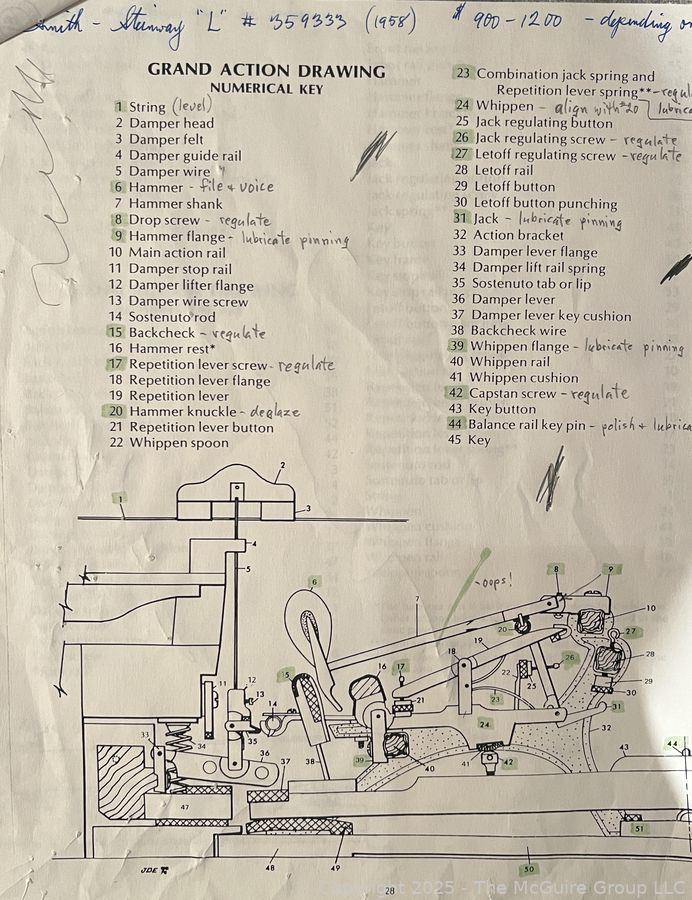 Smith - Steinway "L" # 359333 (1958) $ 900-1200 - depending on
GRAND ACTION DRAWING
NUMERICAL KEY
1 String (level)
2 Damper head
3 Damper felt
4 Damper guide rail
5 Damper wire
6 Hammer - file + voice
7 Hammer shank
8 Drop screw - regulate
9 Hammer flange - lubricate pinning
10 Main action rail
11 Damper stop rail
12 Damper lifter flange
13 Damper wire screw
14 Sostenuto rod
15 Backcheck - regulate
16 Hammer rest*
17 Repetition lever screw - regulate
18 Repetition lever flange
19 Repetition lever
20 Hammer knuckle - deglaze
21 Repetition lever button
22 Whippen spoon
23 Combination jack spring and
Repetition lever spring** - regul
24 Whippen - align with #20 lubrica
25 Jack regulating button
26 Jack regulating screw - regulate
27 Letoff regulating screw - regulate
28 Letoff rail
29 Letoff button
30 Letoff button punching
31 Jack - lubricate pinning
32 Action bracket
33 Damper lever flange
34 Damper lift rail spring
35 Sostenuto tab or lip
36 Damper lever
37 Damper lever key cushion
38 Backcheck wire
39 Whippen flange - lubricate pinning
40 Whippen rail
41 Whippen cushion
42 Capstan screw - regulate
43 Key button
44 Balance rail key pin - polish + lubrica
45 Key
2
1
3
4
5
- oops!
6
7
8
9
10
20
27
19
28
18
26
16
17
15
11
12
13
22
25
29
30
21
23
31
14
24
33
34
35
32
36
37
38
39
40
41
42
43
44
47
51
48
49
50
JDE
28
Copyright 2025 - The McGuire Group LLC